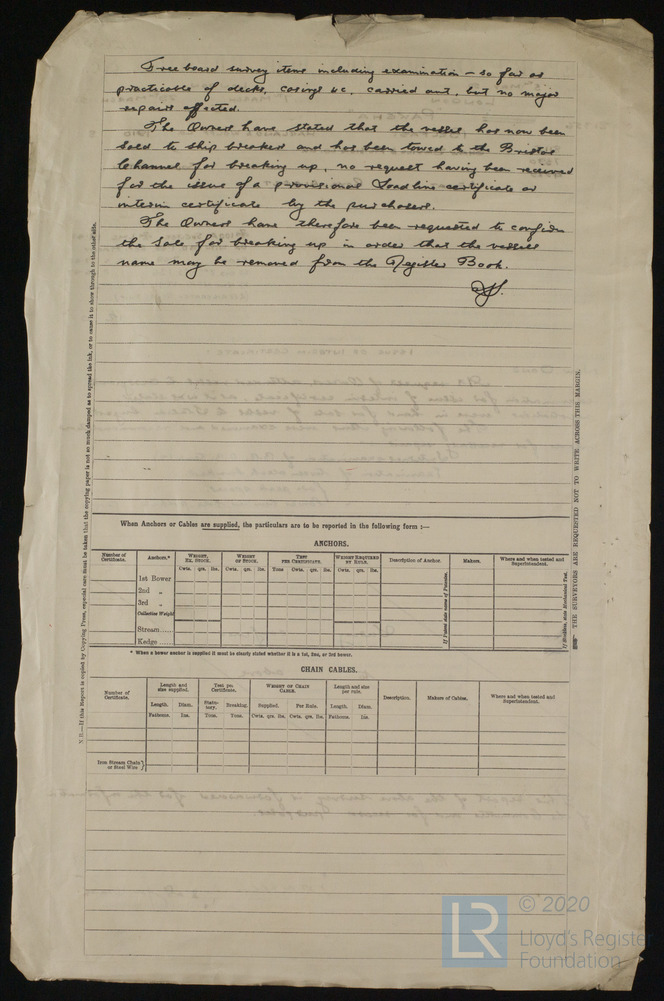 Freeboard survey items including examination - so far as
practicable of decks, casings &c. carried out, but no major
repairs effected.
The Owners have stated that the vessel has now been
sold to ship breakers and has been towed to the Bristol
Channel for breaking up, no request having been received
for the issue of a provisional Load line certificate or
interim certificate by the purchasers.
The Owners have therefore been requested to confirm
the sale for breaking up in order that the vessels
name may be removed from the Register Book.
N.B.—If this Report is copied by Copying Press, especial care must be taken that the copying paper is not so much damped as to spread the ink, or to cause it to show through to the other side.
THE SURVEYORS ARE REQUESTED NOT TO WRITE ACROSS THIS MARGIN.
When Anchors or Cables are supplied, the particulars are to be reported in the following form :—
ANCHORS.
Number of Certificate. Anchors.* WEIGHT, EX. STOCK. WEIGHT OF STOCK. TEST PER CERTIFICATE. WEIGHT REQUIRED BY RULE. Description of Anchor. Makers. Where and when tested and Superintendent.
Cwts. qrs. lbs. Cwts. qrs. lbs. Tons Cwts. qrs. lbs. Cwts. qrs. lbs.
1st Bower
2nd „
3rd „
Collective Weight
Stream......
Kedge ......
If Patent state name of Patentee.
If Stockless, state Mechanical Test.
* When a bower anchor is supplied it must be clearly stated whether it is a 1st, 2nd, or 3rd bower.
CHAIN CABLES.
Number of Certificate. Length and size supplied. Test per Certificate. WEIGHT OF CHAIN CABLE. Length and size per rule. Description. Makers of Cables. Where and when tested and Superintendent.
Length. Diam. Statutory. Breaking. Supplied. Per Rule. Length. Diam.
Fathoms. Ins. Tons. Tons. Cwts. qrs. lbs. Cwts. qrs. lbs. Fathoms. Ins.
Iron Stream Chain or Steel Wire }
LR
© 2020
Lloyd's Register
Foundation